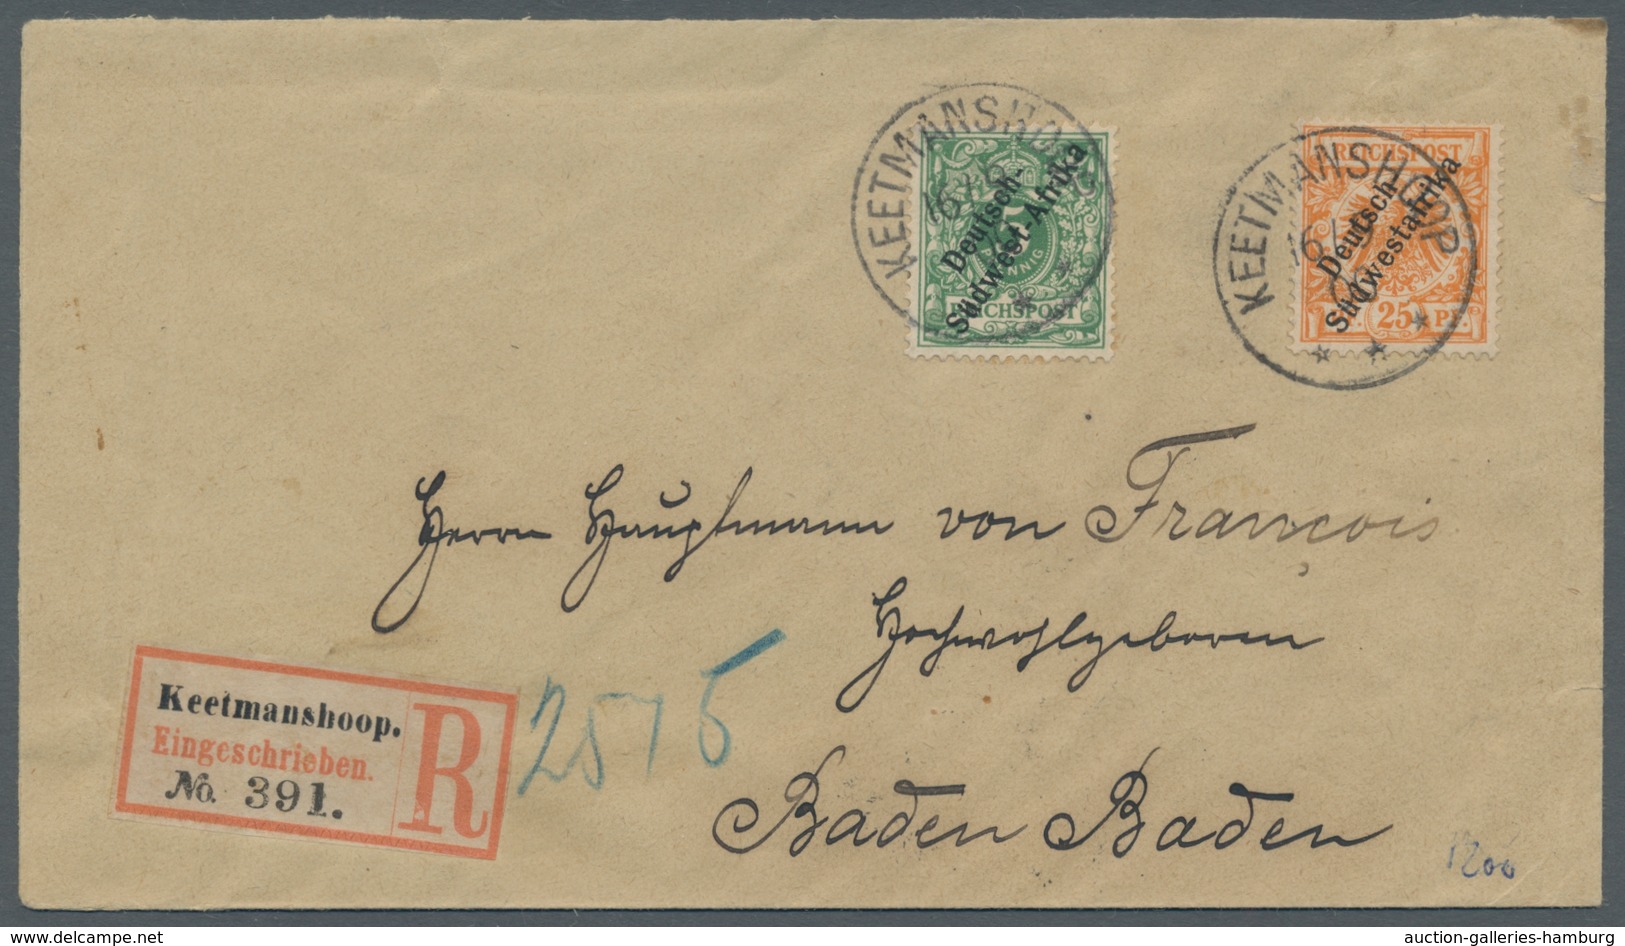 KEETMANSHOOP
Deutsch-
Südwest-Afrika
5
PFENNIG
REICHSPOST
KEETMANSHOOP
REICHSPOST
Deutsch-
Südwestafrika
25 PF.
Herrn Hauptmann von François
Hochwohlgeboren
Baden Baden
Keetmanshoop.
Eingeschrieben.
No. 391.
R
1200
www.delcampe.net
auction-galleries-hamburg